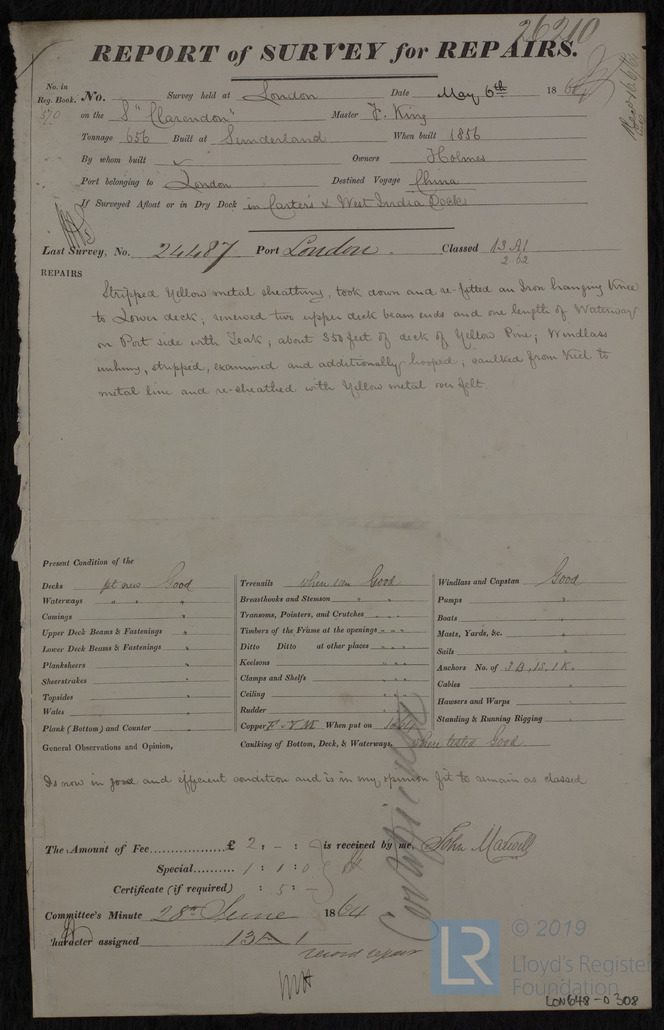 26210
REPORT of SURVEY for REPAIRS.
No. in Reg. Book. 370 No. Survey held at London Date May 6th 1864
on the S "Clarendon" Master F. King
Tonnage 656 Built at Sunderland When built 1856
By whom built Owners Holmes
Port belonging to London Destined Voyage China
If Surveyed Afloat or in Dry Dock in Carter's & West India Docks
Last Survey, No. 24487 Port London. Classed 13 A1
2.62
REPAIRS
Stripped Yellow metal sheathing, took down and re-fitted an Iron hanging Knee
to Lower deck; renewed two upper deck beam ends and one length of Waterway
on Port side with Teak; about 350 feet of deck of Yellow Pine; Windlass
unhung, stripped, examined and additionally hooped; caulked from Keel to
metal line and re-sheathed with Yellow metal over felt.
Present Condition of the
Decks pt new Good
Waterways " " "
Comings "
Upper Deck Beams & Fastenings "
Lower Deck Beams & Fastenings "
Planksheers "
Sheerstrakes "
Topsides "
Wales "
Plank (Bottom) and Counter "
Treenails when seen Good
Breasthooks and Stemson " "
Transoms, Pointers, and Crutches " "
Timbers of the Frame at the openings " " "
Ditto Ditto at other places " " "
Keelsons " "
Clamps and Shelfs " "
Ceiling " "
Rudder " "
Copper F. Y.M. When put on 1864
Caulking of Bottom, Deck, & Waterways, when tested Good
Windlass and Capstan Good
Pumps "
Boats "
Masts, Yards, &c. "
Sails "
Anchors No. of 3B, 1S, 1K.
Cables "
Hawsers and Warps "
Standing & Running Rigging "
General Observations and Opinion,
Is now in good and efficient condition and is in my opinion fit to remain as classed
Certificate
The Amount of Fee £ 2 : - : is received by me, John Maxwell
Special 1 : 1 : 0
Certificate (if required) : 5 : -
Committee's Minute 28th June 1864
Character assigned 13 A 1
record repair
© 2019
LR
Lloyd's Register
Foundation
LON648-0308